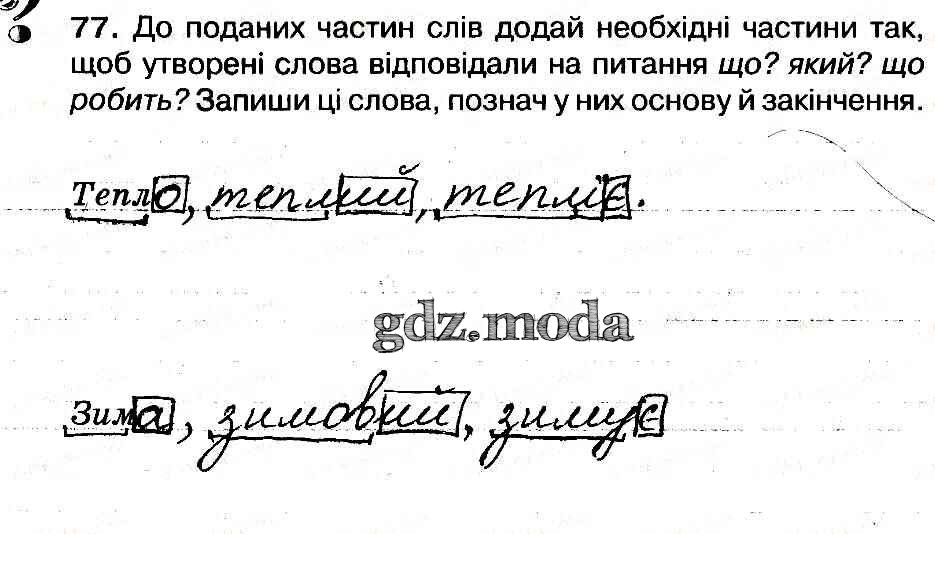 77. До поданих частин слів додай необхідні частини так,
щоб утворені слова відповідали на питання що? який? що
робить? Запиши ці слова, познач у них основу й закінчення.
Тепло, теплий, тепліє.
gdz.moda
Зима, зимовий, зимує